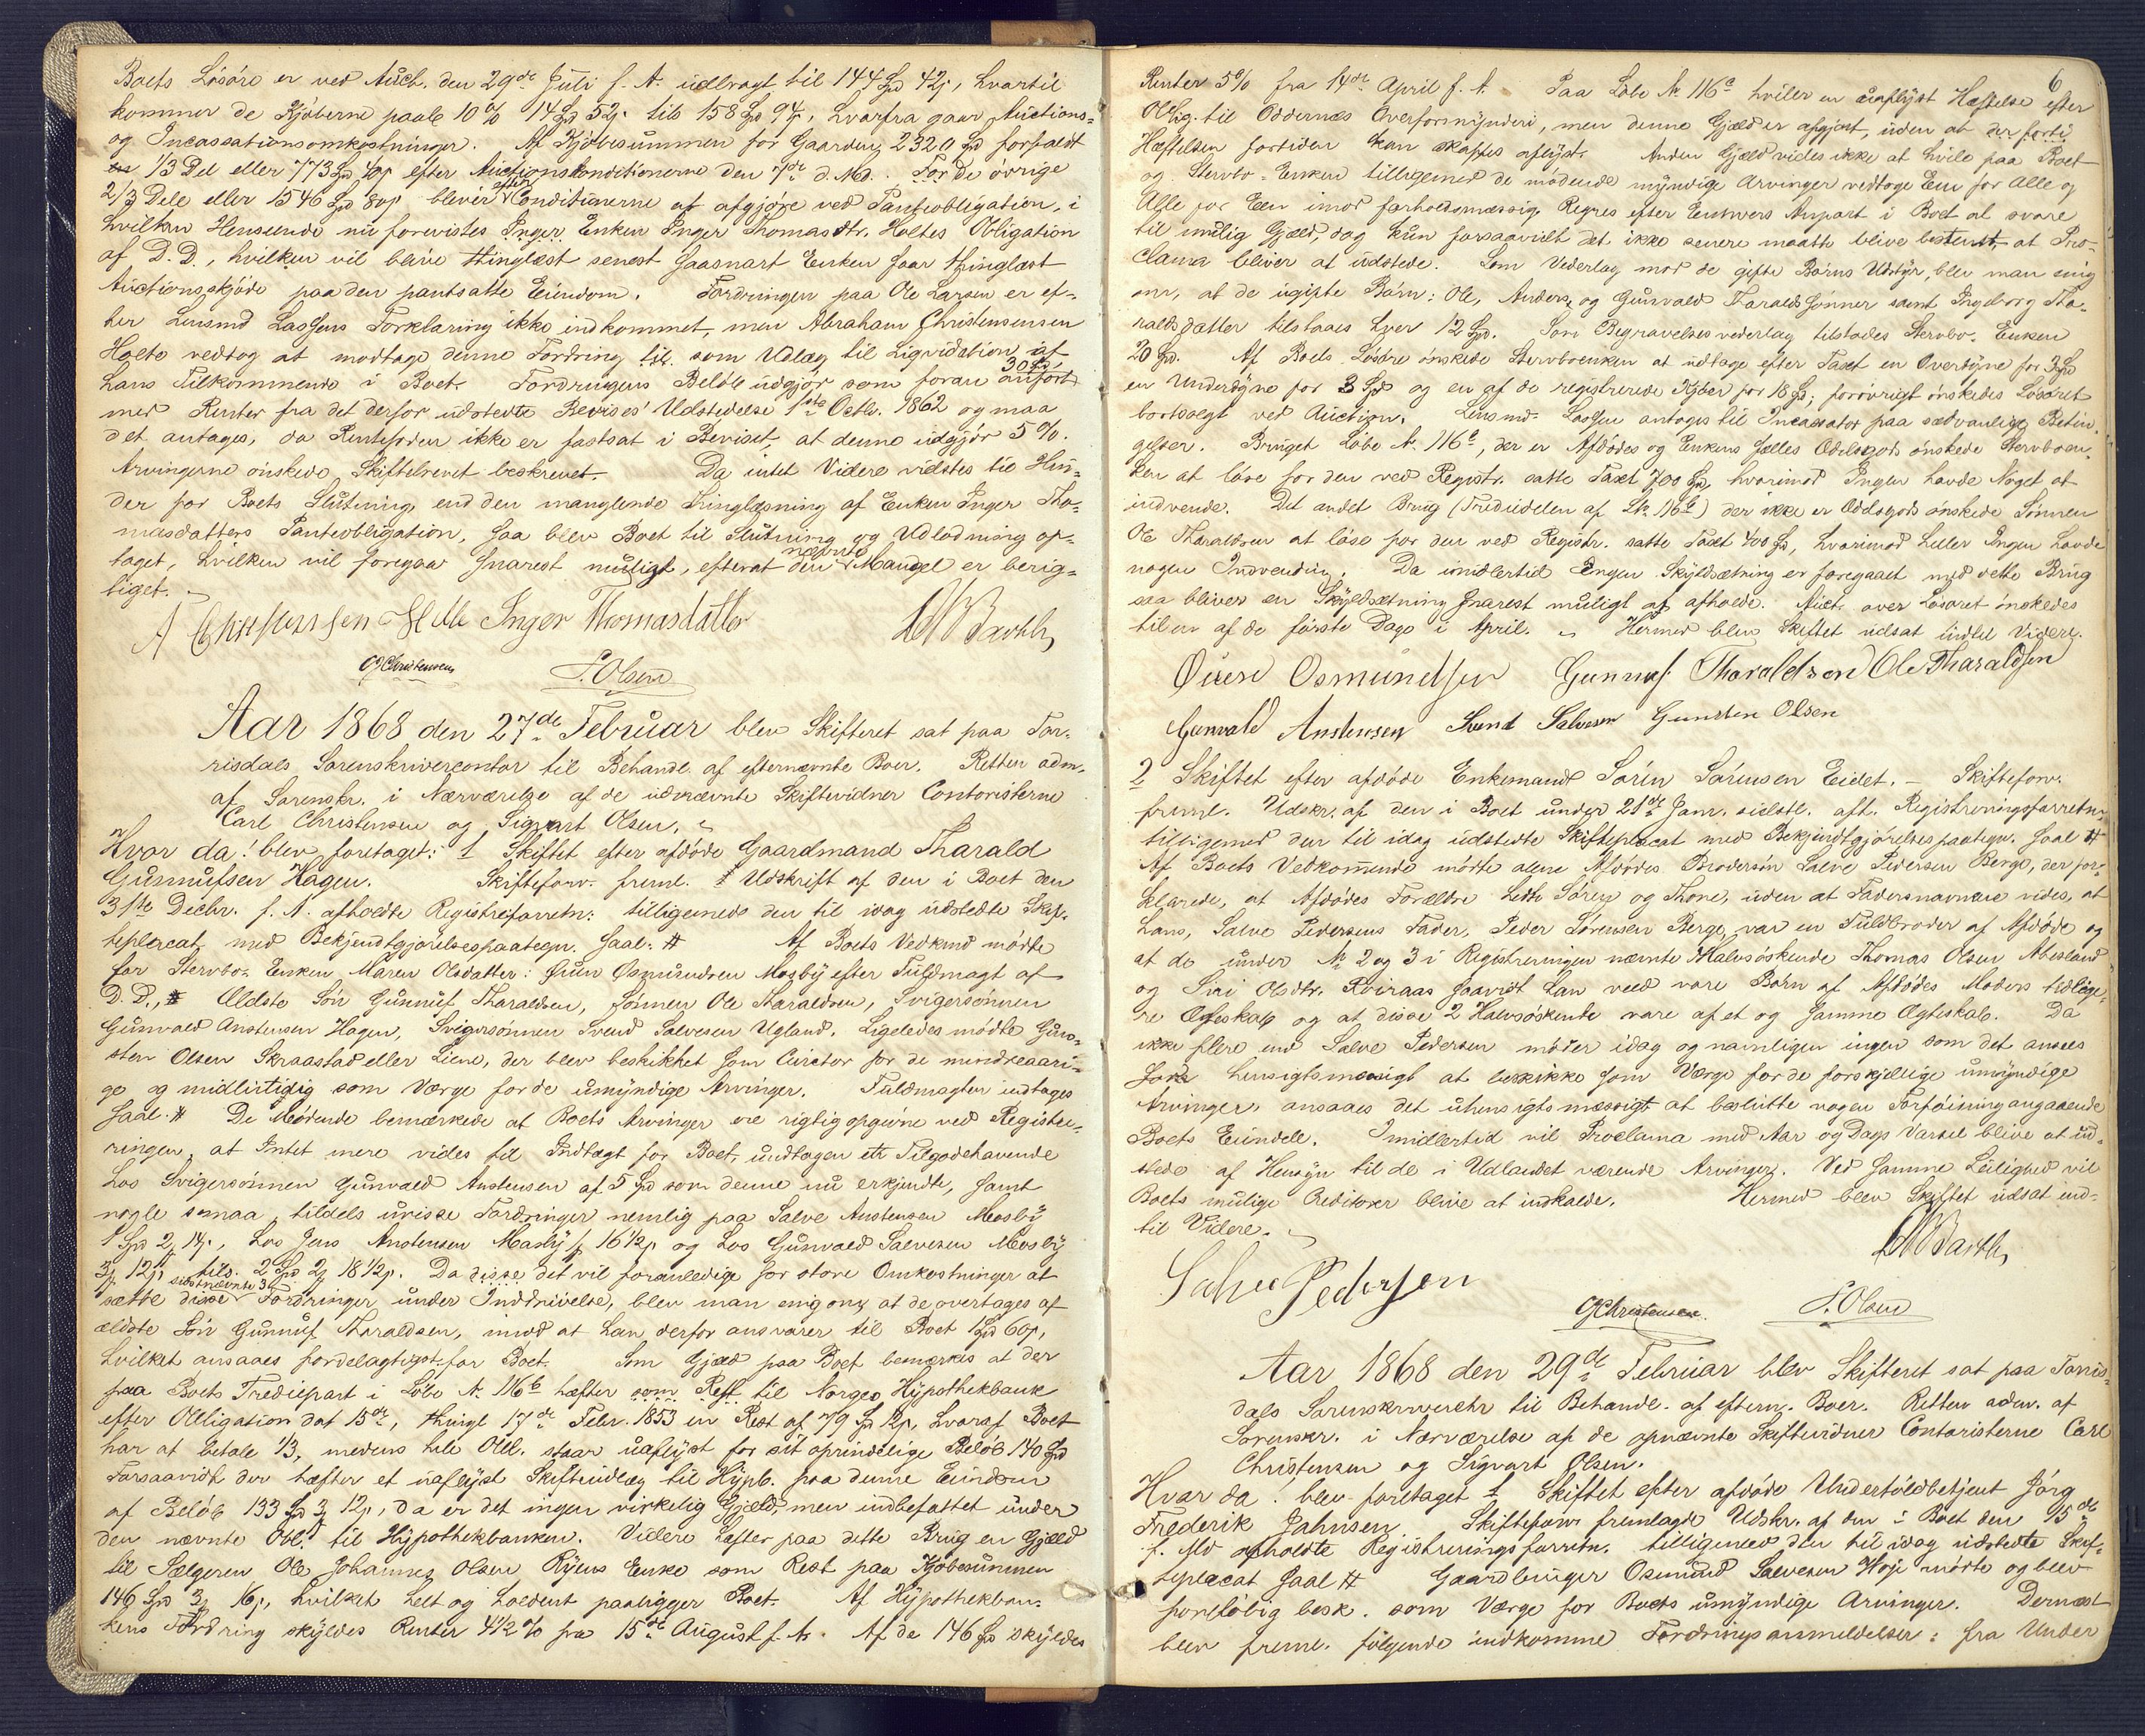 Boets Løsøre er ved Auct. den 29de Juli f. A. udbragt til 144 Spd 42ʃ, hvartil
kommer de Kjøberne paalb 10% 14 Spd 52ʃ. tils 158 Spd 94ʃ, hvorfra gaar Auctions-
og Incassationsomkostninger. Af Kjøbesummen for Gaarden 2320 Spd forfaldt
1/3 Del eller 773 Spd 40ʃ efter Auctionskonditionerne den 7de d. Md. For de øvrige
2/3 Dele eller 1546 Spd 80ʃ bliver efter Conditionerne at afgjøre ved Panteobligation, i
hvilken Henseende nu forevistes Inger Enken Inger Thomasdtr. Holtes Obligation
af D. D., hvilken vil blive thinglæst senest saasnart Enken faar thinglæst
Auctionsskjøde paa den pantsatte Eiendom. Fordringen paa Ole Larsen er ef-
ter Lensmd Lassens Forklaring ikke indkommet, men Abraham Christensensen
Holte vedtog at modtage denne Fordring til som Udlæg til Liqvidation af
hans Tilkommende i Boet. Fordringens Beløb udgjør som foran anført 30 Spd,
med Renter fra det derfor udstedte Bevises Udstedelse 1ste Octb. 1862 og maa
det antages, da Rentefoden ikke er fastsat i Beviset, at denne udgjør 5%.
Arvingerne ønskede Skiftebrevet beskrevet. Da intet Videre vidstes til Hin-
der for Boets Slutning, end den manglende Thinglæsning af Enken Inger Tho-
masdatters Panteobligation, saa blev Boet til Slutning og Udlodning op-
taget, hvilken vil foregaa snarest muligt, efterat den nævnte Mangel er berig-
tiget.
A Christenssen Holte Inger Thomasdatter
C Christensen S. Olsen
Aar 1868 den 27de Februar blev Skifteret sat paa Tor-
risdals Sorenskrivercontor til Behandl. af efternævnte Boer. Retten adm.
af Sorenskr. i Nærværelse af de udnævnte Skiftevidner Contoristerne
Carl Christensen og Sigvart Olsen.
Hvor da! blev foretaget: 1 Skiftet efter afdøde Gaardmand Tharald
Gunnufsen Hagen. Skifteforv. freml. Udskrift af den i Boet den
31te Decbr. f. A. afholdte Registreforretn. tilligemed den til idag udstedte Skif-
teplacat med Bekjendtgjørelsespaategn. saal. #. Af Boets Vedkmd mødte
for Stervbo-Enken Maren Olsdatter: Øuen Osmundsen Mosby efter Fuldmagt af
D. D., # Ældste Søn Gunnuf Tharaldsen, Sønnen Ole Tharaldsen, Svigersønnen
Gunvald Anstensen Hagen, Svigersønnen Svend Salvesen Ugland. Ligeledes mødte Gun-
sten Olsen Skraastad eller Liene, der blev beskikket som Curator for de mindreaari-
ge og midlertidig som Værge for de umyndige Arvinger. Fuldmagten indtages
saal. # De Mødende bemærkede at Boets Arvinger ere rigtig opgivne ved Registre-
ringen, at Intet mere vides til Indtægt for Boet, undtagen ett Tilgodehavende
hos Svigersønnen Gunvald Anstensen af 5 Spd som denne nu erkjendte, samt
nogle smaa, tildels uvisse Fordringer nemlig paa Salve Anstensen Mosby
1 Spd 2 14ʃ, hos Jens Anstensen Mosby 16 1/2ʃ og hos Gunvald Salvesen Mosby
3 12ʃ, tils. 2 Spd 2 18 1/2ʃ. Da disse det vil foranledige for store Omkostninger at
sætte disse sidstnævnte 3 Fordringer under Inddrivelse, blev man enig om, at de overtages af
ældste Søn Gunnuf Tharaldsen, imod at han derfor ansvarer til Boet 1 Spd 60ʃ,
hvilket ansaaes fordelagtigst for Boet. Som Gjæld paa Boet bemærkes at der
paa Boets Trediepart i Løbe N. 116b hæfter som Rest til Norges Hypothekbank
efter Obligation dat 15de, thingl 17de Febr. 1853 en Rest af 79 Spd 12ʃ, hvoraf Boet
har at betale 1/3, medens hele Obl. staar uaflyst for sit oprindelige Beløb 140 Spd
Forsaavidt der hæfter et uaflyst Skifteudlæg til Hypb. paa denne Eiendom
af Beløb 133 Spd 3 12ʃ, da er det ingen virkelig Gjæld, men indbefattet under
den nævnte Obl. til Hypothekbanken. Videre hæfter paa dette Brug en Gjæld
til Sælgeren Ole Johannes Olsen Ryens Enke som Rest paa Kjøbesummen
146 Spd 3 16ʃ, hvilket helt og holdent paaligger Boet. Af Hypothekban-
kens Fordring skyldes Renter 4 1/2% fra 15de August f. A. Af de 146 Spd skyldes
6
Renter 5% fra 14de April f. A. Paa Løbe N. 116a hviler en uaflyst Hæftelse efter
Oblig. til Oddernæs Overformynderi, men denne Gjæld er afgjort, uden at der forti
Hæftelsen fortiden kan skaffes aflyst. Anden Gjæld vides ikke at hvile paa Boet
og Stervbo-Enken tilligemed de mødende myndige Arvinger vedtoge Een for Alle og
Alle for Een imod forholdsmæssig Regres efter Enhvers Anpart i Boet at svare
til mulig Gjæld, dog kun forsaavidt det ikke senere maatte blive bestemt, at Pro-
clama bliver at udstede. Som Vederlag mod de gifte Børns Udstyr, blev man enig
om, at de ugifte Børn: Ole, Anders og Gunvald Tharaldssønner samt Ingeborg Tha-
raldsdatter tilstaaes hver 12 Spd. Som Begravelsesvederlag tilstodes Stervbo-Enken
20 Spd. Af Boets Løsøre ønskede Stervboenken at udtage efter Taxt en Overdyne for 3 Spd
en Underdyne for 3 Spd og en af de registrerede Kjøer for 18 Spd; forøvrigt ønskedes Løsøret
bortsolgt ved Auction. Lensmd Lassen antoges til Incassator paa sædvanlige Betin-
gelser. Bruget Løbe N. 116a, der er Afdødes og Enkens fælles Odelsgods ønskede Stervboen-
ken at løse for den ved Registr. satte Taxt 700 Spd, hvorimod Ingen havde Noget at
indvende. Det andet Brug (Trediedelen af L.N. 116b) der ikke er Oddsgods ønskede Sønnen
Ole Tharaldsen at løse for den ved Registr. satte Taxt 400 Spd, hvorimod heller Ingen havde
nogen Indvending. Da imidlertid Ingen Skyldsætning er foregaaet med dette Brug
saa bliver en Skyldsætning snarest muligt at afholde. Auct. over Løsøret ønskedes
til en af de første Dage i April. Hermed blev Skiftet udsat indtil Videre.
Øuen Osmundsen Gunnuf Tharaldsen Ole Tharaldsen
Gunvald Anstensen Svend Salvesen Gunsten Olsen
2 Skiftet efter afdøde Enkemand Søren Sørensen Eidet. – Skifteforv.
freml. Udskr. af den i Boet under 21de Jan. sidstl. afh. Registreringsforretn.
tilligemed den til idag udstedte Skifteplacat med Bekjendtgjørelsespaategn. saal #
Af Boets Vedkommende mødte alene Afdødes Brodersøn Salve Pedersen Berge, der for-
klarede, at Afdødes Forældre hedte Søren og Thone, uden at Fadersnavnene vides, at
hans, Salve Pedersens Fader, Peder Sørensen Berge, var en Fuldbroder af Afdøde og
at de under N. 2 og 3 i Registreringen nævnte Halvsøskende Thomas Olsen Abesland
og Siri Olsdtr. Kviraas saavidt han veed vare Børn af Afdødes Moders tidlige-
re Ægteskab og at disse 2 Halvsøskende vare af et og samme Ægteskab. Da
ikke flere end Salve Pedersen møder idag og navnligen ingen som det ansees
hensigtsmæssigt at beskikke som Værge for de forskjellige umyndige
Arvinger, ansaaes det uhensigtsmæssigt at beslutte nogen Forføining angaaende
Boets Eiendele. Imidlertid vil Proclama med Aar og Dags Varsel blive at ud-
stede af Hensyn til de i Udlandet værende Arvinger. Ved samme Leilighed vil
Boets mulige Creditorer blive at indkalde. Hermed blev Skiftet udsat ind-
til Videre.
Salve Pedersen
C Christensen. S. Olsen
Aar 1868 den 29de Februar blev Skifteret sat paa Torris-
dals Sorenskrivercontr til Behandl. af eftern. Boer. Retten adm. af
Sorenskr. i Nærværelse af de opnævnte Skiftevidner Contoristerne Carl
Christensen og Sigvart Olsen.
Hvor da! blev foretaget 1 Skiftet efter afdøde Undertoldbetjent Jørg
Frederik Jahnsen. Skifteforv. fremlagde Udskr. af den i Boet den 15de
f. Md afholdte Registreringsforretn. tilligemed den til idag udstedte Skif-
teplacat saal # Gaardbruger Osmund Salvesen Høje mødte og blev
foreløbig besk. som Værge for Boets umyndige Arvinger. Dernæst
blev freml. følgende indkomne Fordringsanmeldelser: fra Under